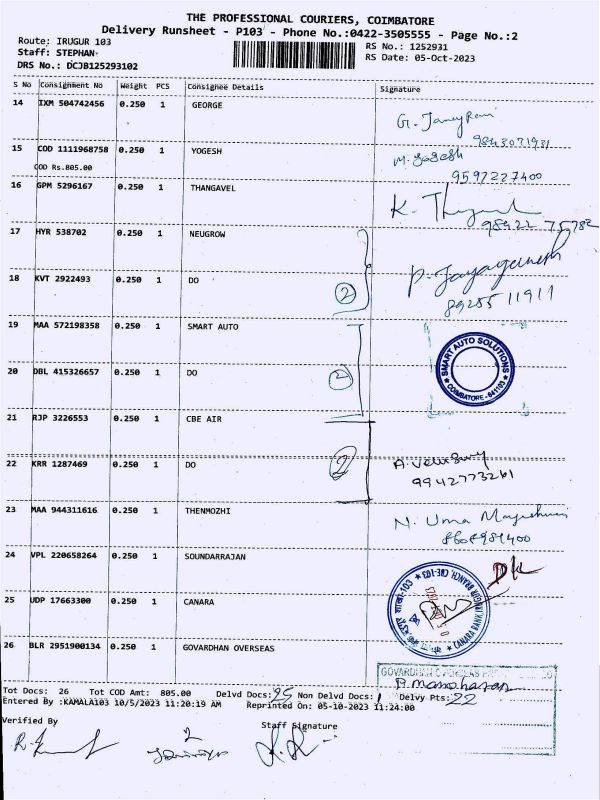 THE PROFESSIONAL COURIERS, COIMBATORE
Delivery Runsheet - P103 - Phone No.:0422-3505555 - Page No.:2
Route: IRUGUR 103
RS No.: 1252931
Staff: STEPHAN
RS Date: 05-Oct-2023
DRS No.: DCJB125293102
S No Consignment No Weight PCS Consignee Details Signature
14 IXM 504742456 0.250 1 GEORGE
9843071931
15 COD 1111968758 0.250 1 YOGESH
COD Rs.805.00
9597227400
16 GPM 5296167 0.250 1 THANGAVEL
K.
98922 75782
17 HYR 538702 0.250 1 NEUGROW
P. Jayaganesh
18 KVT 2922493 0.250 1 DO 2
8925511911
19 MAA 572198358 0.250 1 SMART AUTO
SMART AUTO SOLUTIONS
COIMBATORE - 641103
20 DBL 415326657 0.250 1 DO 2
21 RJP 3226553 0.250 1 CBE AIR
22 KRR 1287469 0.250 1 DO 2
9942773261
23 MAA 944311616 0.250 1 THENMOZHI
N. Uma Mageshwari
24 VPL 220658264 0.250 1 SOUNDARRAJAN
25 UDP 17663300 0.250 1 CANARA
CANARA BANK, IRUGUR BRANCH, CBE-103
26 BLR 2951900134 0.250 1 GOVARDHAN OVERSEAS
GOVARDHAN OVERSEAS
P. Manoharan
Tot Docs: 26 Tot COD Amt: 805.00 Delvd Docs: 25 Non Delvd Docs: 1 Delvy Pts: 22
Entered By :KAMALA103 10/5/2023 11:20:19 AM Reprinted On: 05-10-2023 11:24:00
Verified By
Staff Signature